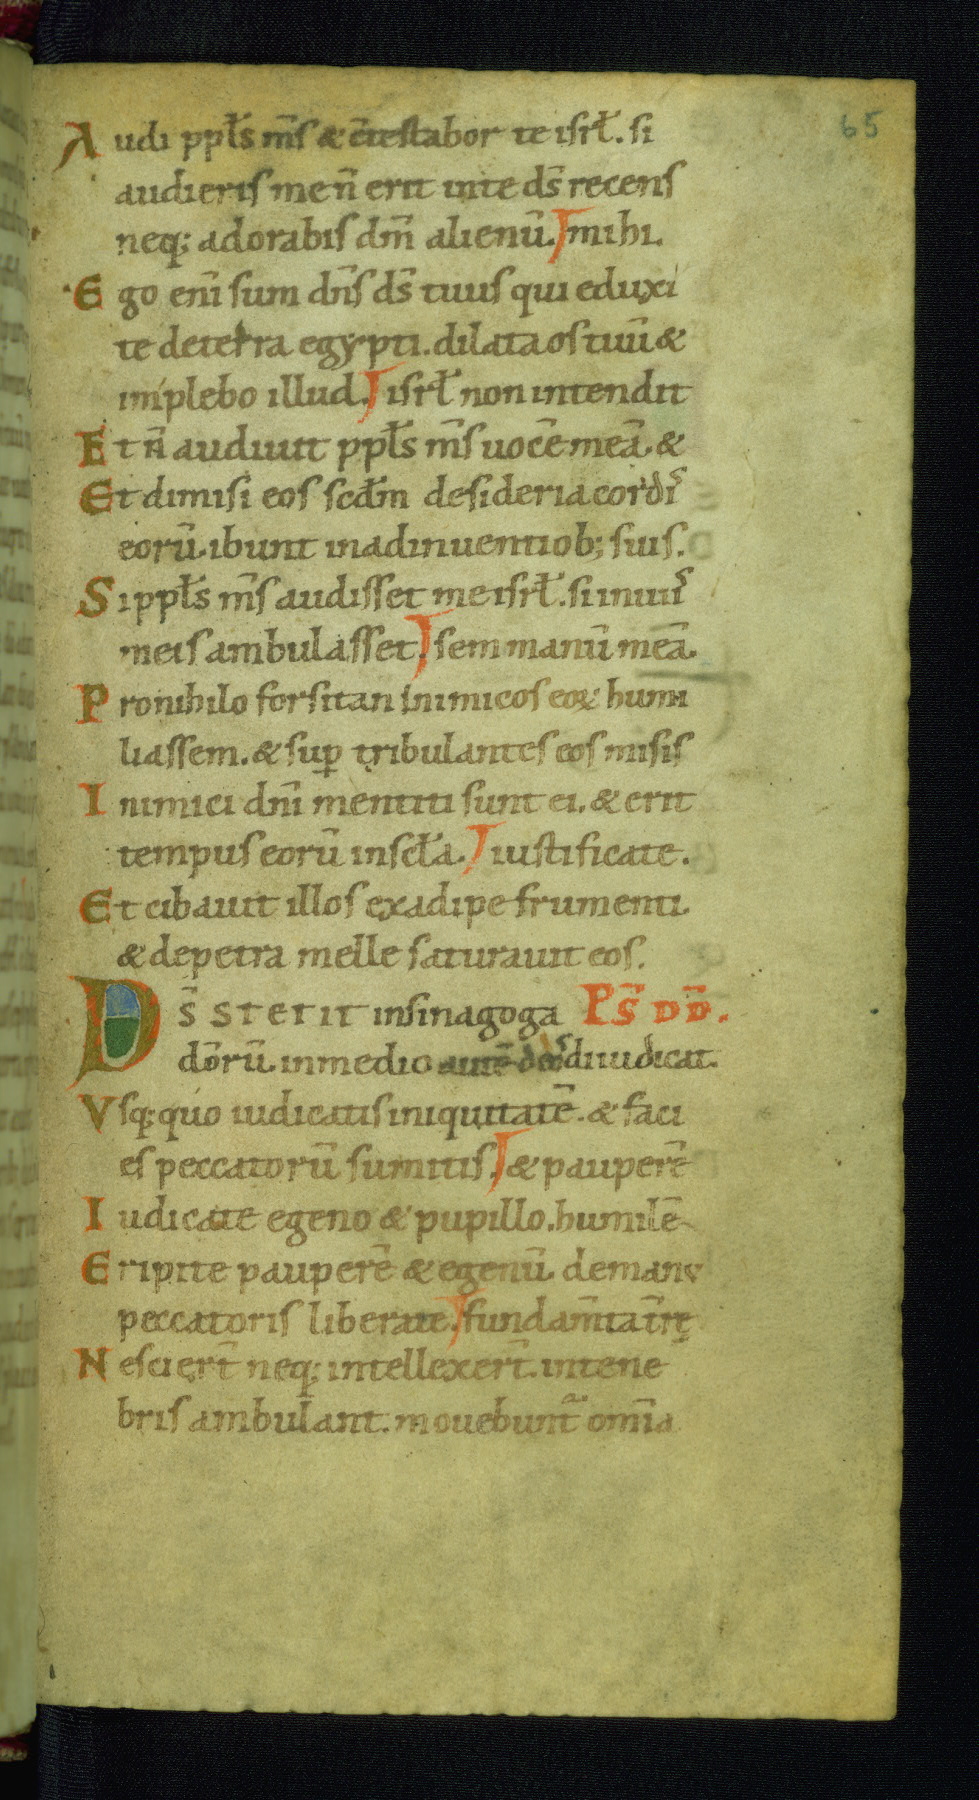 65
Audi pp̄ls m̄s & c̄testabor te isrł. si
audieris me n̄ erit inte ds̄ recens
neq; adorabis dm̄ alienū. mihi.
Ego eni̅ sum dn̄s ds̄ tuus qui eduxi
te deterra egypti. dilata os tuū &
implebo illud. isrł non intendit
Et n̄ audiuit pp̄ls m̄s uocē meā. &
Et dimisi eos scd̄m desideria cordis
eorū. ibunt inadinuentiob; suis.
Si pp̄ls m̄s audisset me isrł. si inuiis
meis ambulasset. sem manū meā.
Pro nihilo forsitan inimicos eoꝝ humi
liassem. & sup̄ tribulantes eos misis
Inimici dn̄i mentiti sunt ei. & erit
tempus eorū inscła. iustificate.
Et cibauit illos exadipe frumenti.
& depetra melle saturauit eos.
Ds̄ stetit insinagoga Ps̄ dd̄.
dōrū. inmedio autē diiudicat.
Vsq; quo iudicatis iniquitatē. & faci
es peccatorū sumitis. & pauperē
Iudicate egeno & pupillo. humilē
Eripite pauperē & egenū. demanu
peccatoris liberate. fundam̄ta t̄rę
Nescier̄t neq; intellexer̄t. intene
bris ambulant. mouebunt᷑ omīa